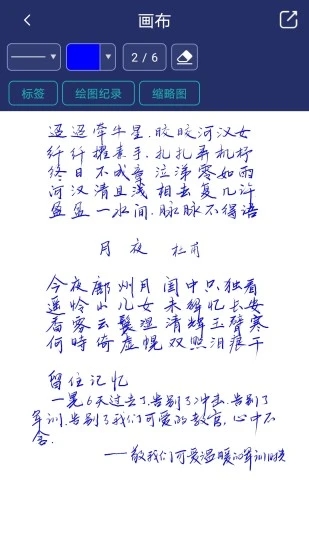 画布
2 / 6
标签 绘图纪录 缩略图
迢迢牵牛星.皎皎河汉女
纤纤擢素手.扎扎弄机杼
终日不成章 泣涕零如雨
河汉清且浅 相去复几许
盈盈一水间.脉脉不得语
月夜 杜甫
今夜鄜州月 闺中只独看
遥怜小儿女 未解忆长安
香雾云鬟湿 清辉玉臂寒
何時倚虚幌 双照泪痕干
留住记忆
一晃6天过去了.告别了冲击.告别了
军训.告别了我们可爱的教官,心中不
舍.
——致我们可爱温暖的军训时光